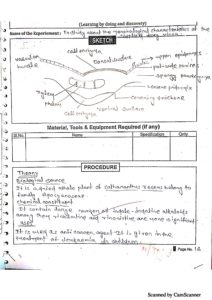 (Learning by doing and discovery)
Name of the Experiement : To study about the morphological characteristics of the
SKETCH
Dorsal surface
upper epidermis
vascular
bundle
palisade
spongy
xylem
Phloem
lower epidermis
collenchyma
Ventral surface
Material, Tools & Equipment Required (if any)
Sl.No. Name Specification Qnty.
PROCEDURE
Theory
Biological source
It is a dried whole plant of catharanthus roseus belong to
family Apocyanaceae
chemical constituent
It contain large number of indole - indoline alkaloids
among them vincristine and vinblastine are more significant.
use
It is used as anti cancer agent. It is given in the
treatment of leukaemia in children.
Page No.
Scanned by CamScanner